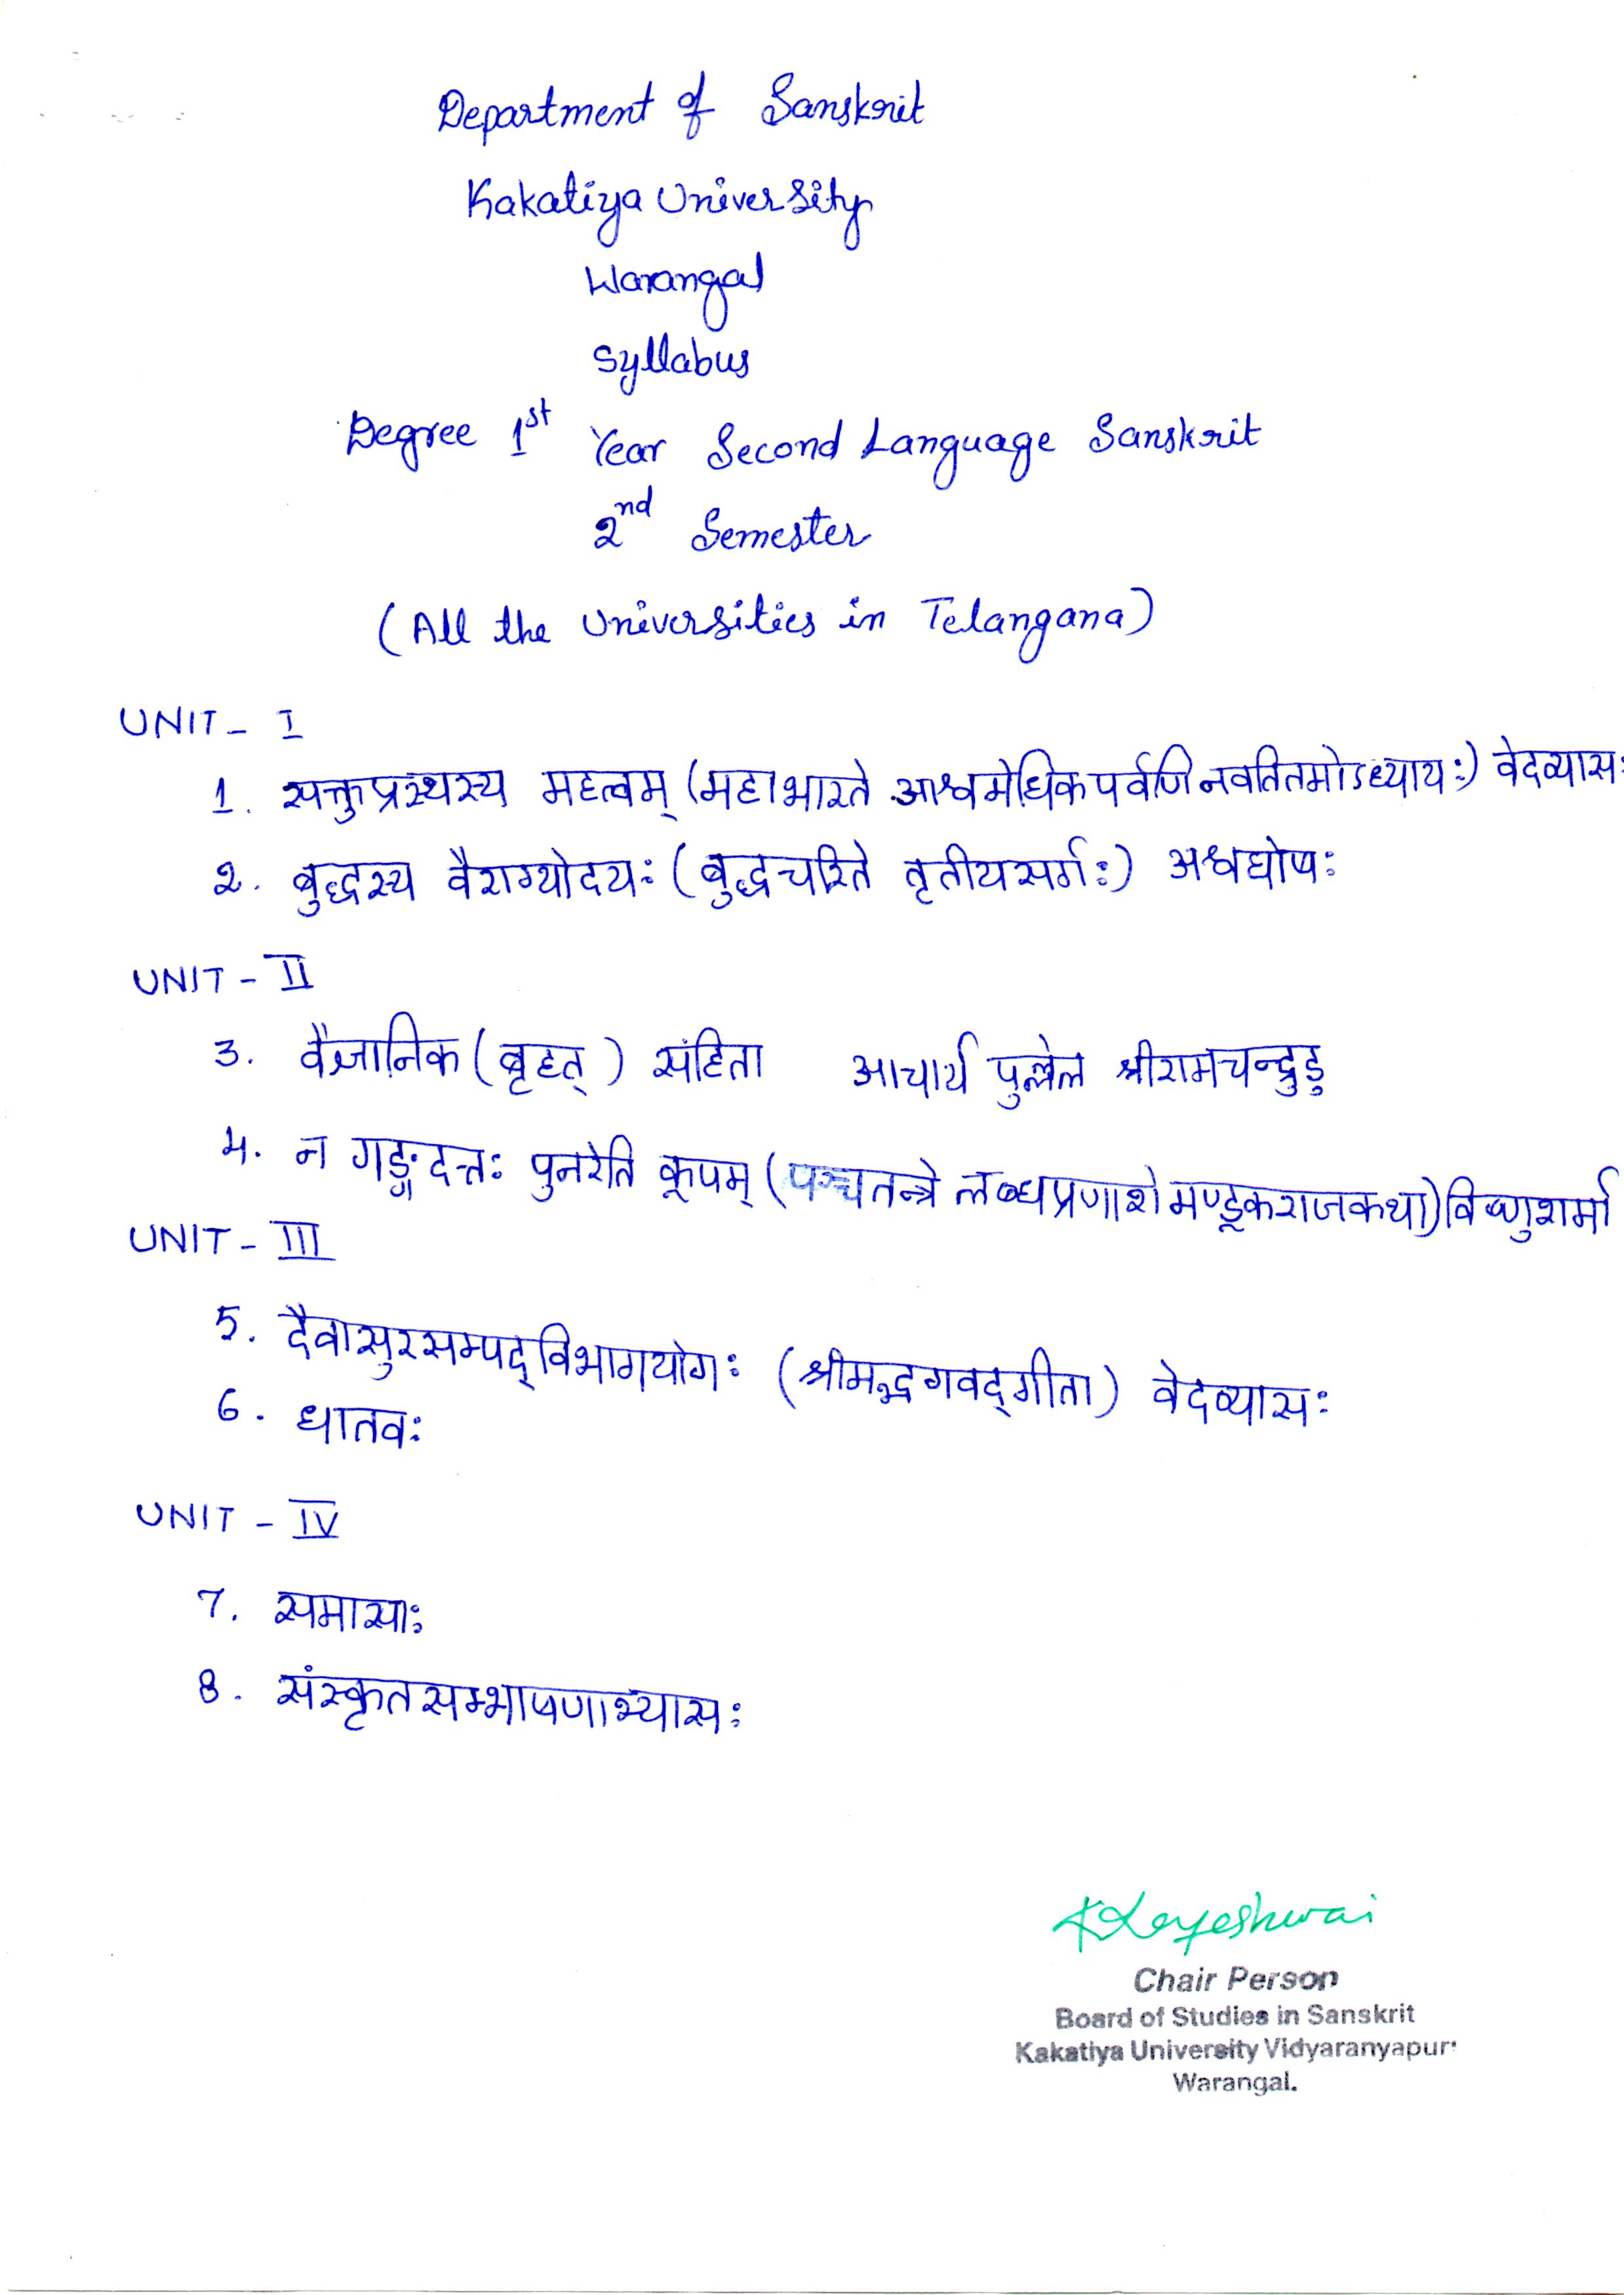 Department of Sanskrit
Kakatiya University
Warangal
Syllabus
Degree 1st Year Second Language Sanskrit
2nd Semester
(All the Universities in Telangana)
UNIT - I
1. सक्तुप्रस्थस्य महत्वम् (महाभारते आश्वमेधिकपर्वणि नवतितमोऽध्यायः) वेदव्यासः
2. बुद्धस्य वैराग्योदयः (बुद्धचरिते तृतीयसर्गः) अश्वघोषः
UNIT - II
3. वैज्ञानिक (बृहत्) संहिता आचार्य पुल्लेल श्रीरामचन्द्रुडु
4. न गङ्गदत्तः पुनरेति कूपम् (पञ्चतन्त्रे लब्धप्रणाशे मण्डूकराजकथा) विष्णुशर्मा
UNIT - III
5. दैवासुरसम्पद्विभागयोगः (श्रीमद्भगवद्गीता) वेदव्यासः
6. धातवः
UNIT - IV
7. समासाः
8. संस्कृतसम्भाषणाभ्यासः
Chair Person
Board of Studies in Sanskrit
Kakatiya University Vidyaranyapur
Warangal.